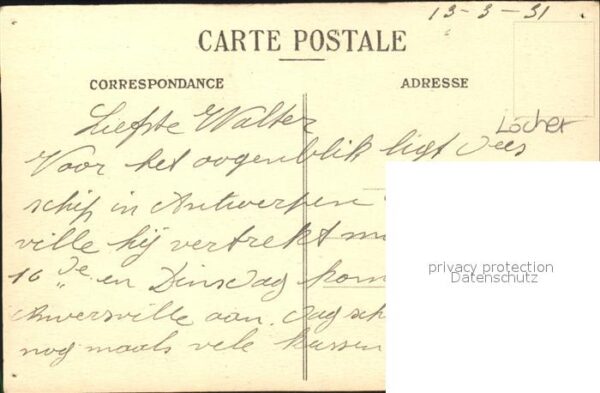 13-3-31
CARTE POSTALE
CORRESPONDANCE
ADRESSE
Löcher
Liefste Walter
Voor het oogenblik ligt dees
schip in Antwerpen
ville hij vertrekt
16 de en Dinsdag kom
Anversville aan. Dag sch
nog maals vele kussen
privacy protection
Datenschutz